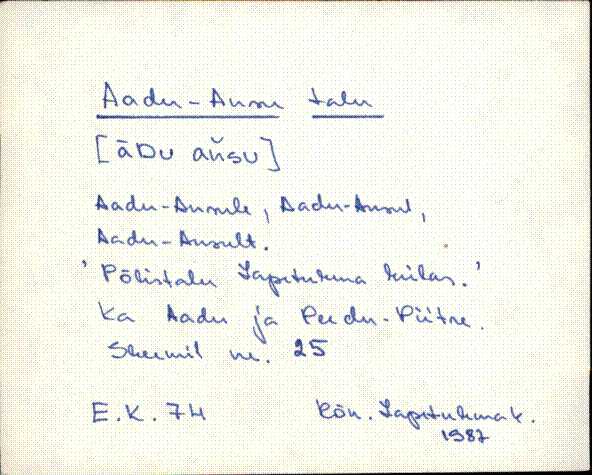 Aadu-Ansu talu
[āDu ańsu]
Aadu-Ansule, Aadu-Ansul,
Aadu-Ansult.
'Põlistalu Lapetukma külas.'
Ka Aadu ja Peedu-Piitre.
Skeemil nr. 25
E.K. 74
Kõn. Lapetukmak.
1987